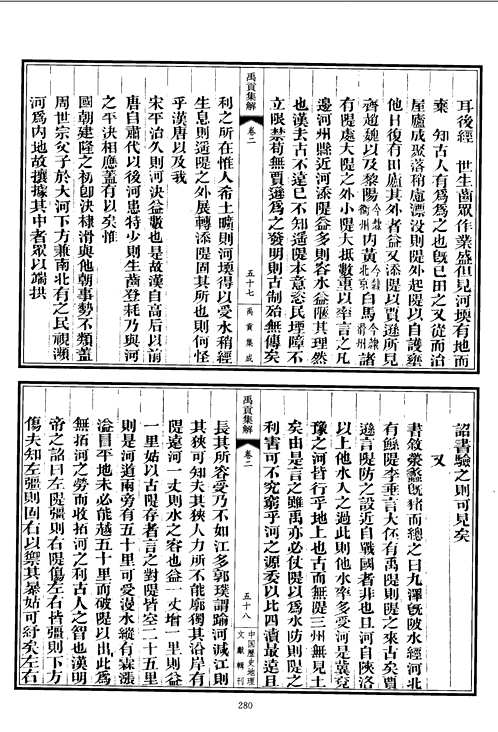 耳後經　世生齒眾作業盛但見河堧有地而
棄　知古人有為為之也既已田之又從而治
屋廬成聚落稍處漂沒則隄外起隄以自護藥
他日復有田廬其外者益又添隄以賈遜所見
齊趙魏以及黎陽今隸衞州內黃今隸北京白馬今隸滑州諸
有隄處大隄之外小隄大抵數重以率言之凡
邊河州縣近河添隄益多則容水益陿其理然
也漢去古不遠已不知遥隄本意恣民堙障不
立限禁荀無賈遜為之發明則古制殆無傳矣
利之所在惟人希土曠則河堧得以受水稍經
生息則遥隄之外展轉添隄固其所也則何怪
乎漢唐以及我
宋平治久則河決益數也是故漢自高后以前
唐自肅代以後河患特少則生齒登耗乃與河
之平決相應蓋有以矣惟
國朝建隆之初卽決棣滑與他朝事勢不類蓋
周世宗父子於大河下方兼南北有之民視瀕
河為內地故攘據其中者眾以端拱
禹貢集解
卷二
五十七
禹貢集成
詔書驗之則可見矣
又
書敘滎蠡旣豬而總之曰九澤旣陂水經河北
有鯀隄李垂言大伾有禹隄則隄之來古矣賈
遜言隄防之設近自戰國者非也且河自陝洛
以上他水人之過此則他水率多受河是冀兗
豫之河皆行乎地上也古而無隄三州無見土
矣由是言之雖禹亦必仗隄以為水防則隄之
利害可不究窮乎河之源委以比四瀆最遠且
長其所容受乃不如江多郭璞謂踰河減江則
其狹可知夫其狹人力所不能廓獨其沿岸有
隄遠河一丈則水之容也益一丈增一里則益
一里姑以古隄存者言之對隄皆空二十五里
則是河道兩旁有五十里可受漫水縱有霖漲
溢目平地未必能越五十里而破隄以出此為
無拓河之勞而收拓河之利古人之智也漢明
帝之詔曰左隄彊則右隄傷左右皆彊則下方
傷夫知左彊則固右以禦其暴姑可紓矣左右
禹貢集解
卷二
五十八
中国歷史地理
文獻輯刊
280